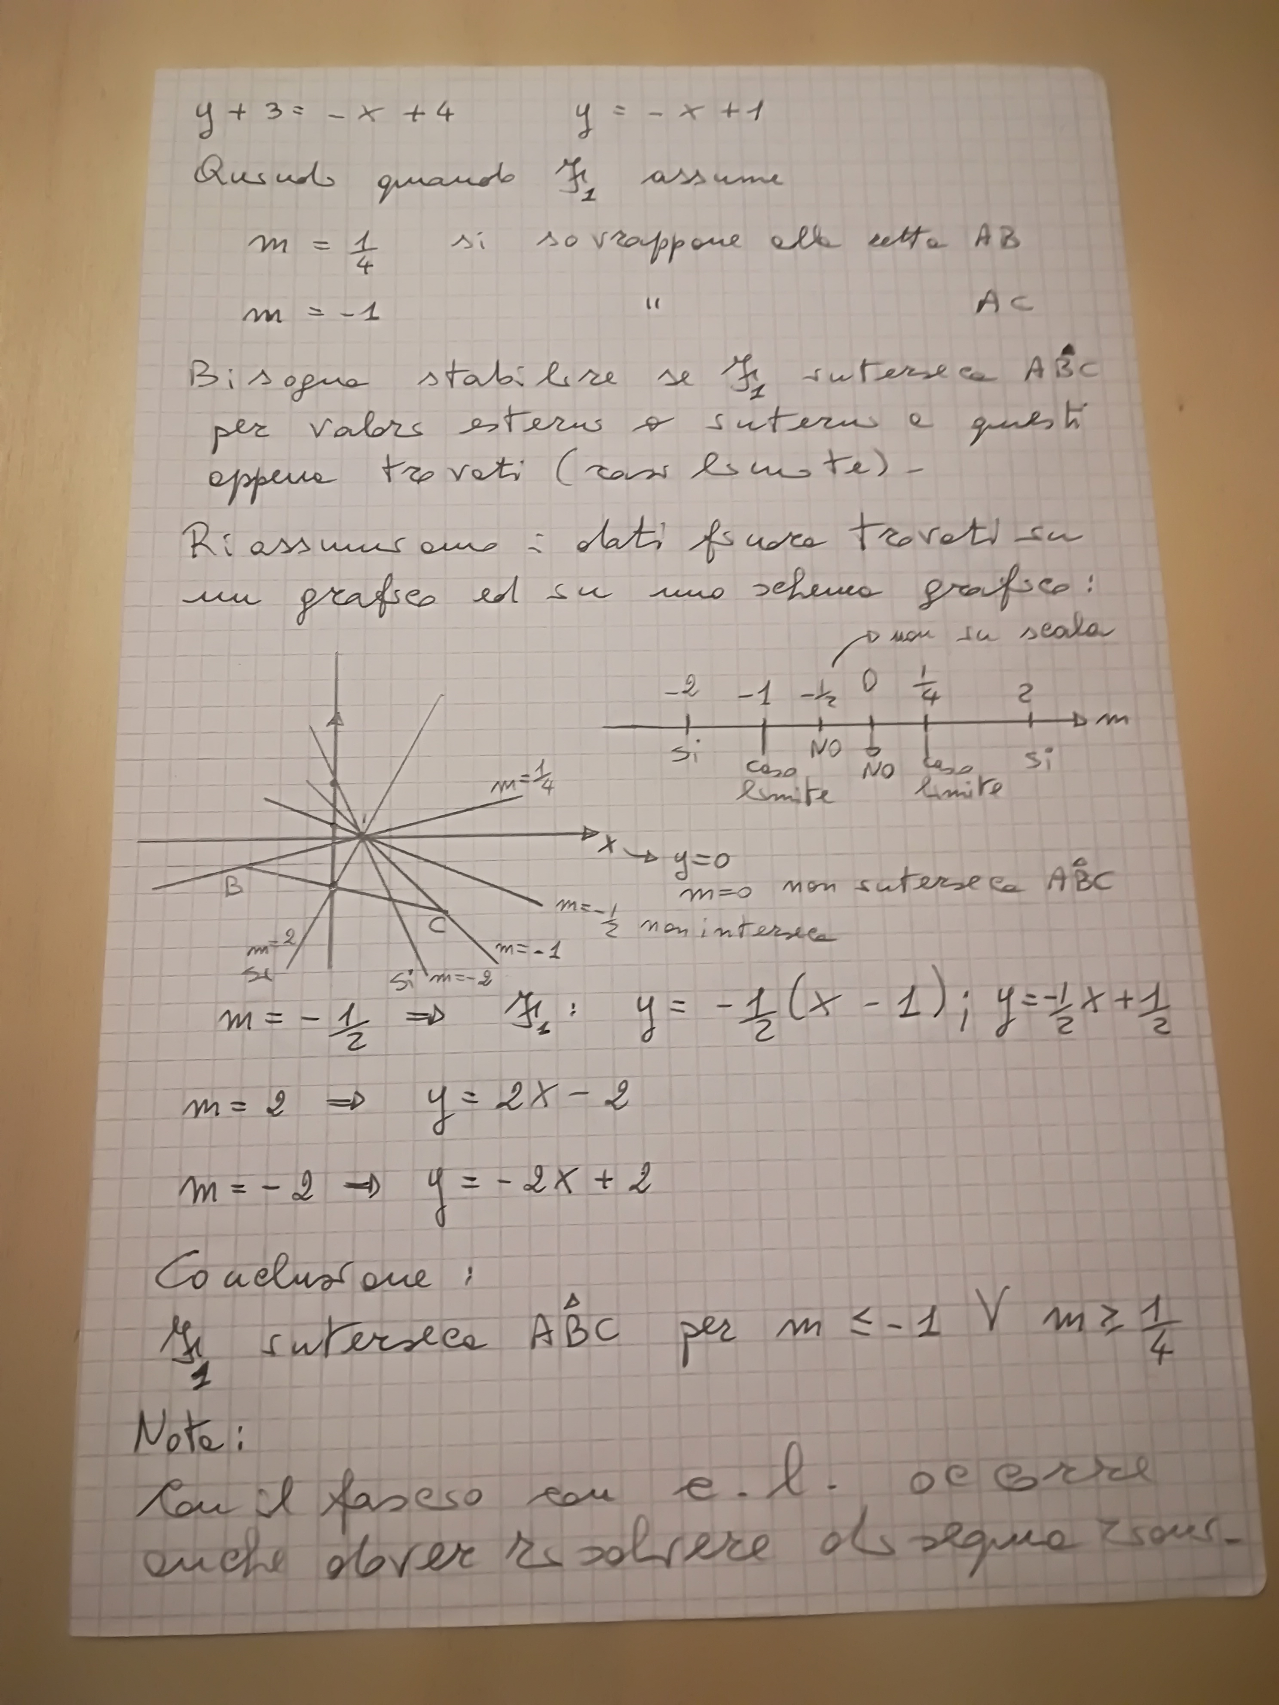 y + 3 = - x + 4 y = - x + 1
Quindi quando F₁ assume
m = 1/4 si sovrappone alla retta AB
m = -1 " AC
Bisogna stabilire se F₁ interseca AB̂C
per valori esterni o interni a questi
appena trovati (casi limite) -
Riassumiamo i dati finora trovati su
un grafico ed su uno schema grafico:
non su scala
-2 -1 -1/2 0 1/4 2
m
Si caso limite NO NO caso limite Si
m=1/4
x → y=0
B
m=0 non interseca AB̂C
m=-1/2 non interseca
C
m=2 m=-1
Si Si m=-2
m = - 1/2 ⇒ F₁: y = - 1/2 (x - 1); y = -1/2 x + 1/2
m = 2 ⇒ y = 2x - 2
m = -2 ⇒ y = -2x + 2
Conclusione:
F₁ interseca AB̂C per m ≤ -1 V m ≥ 1/4
Nota:
Con il fascio con c.l. occorre
anche dover risolvere disequazioni-